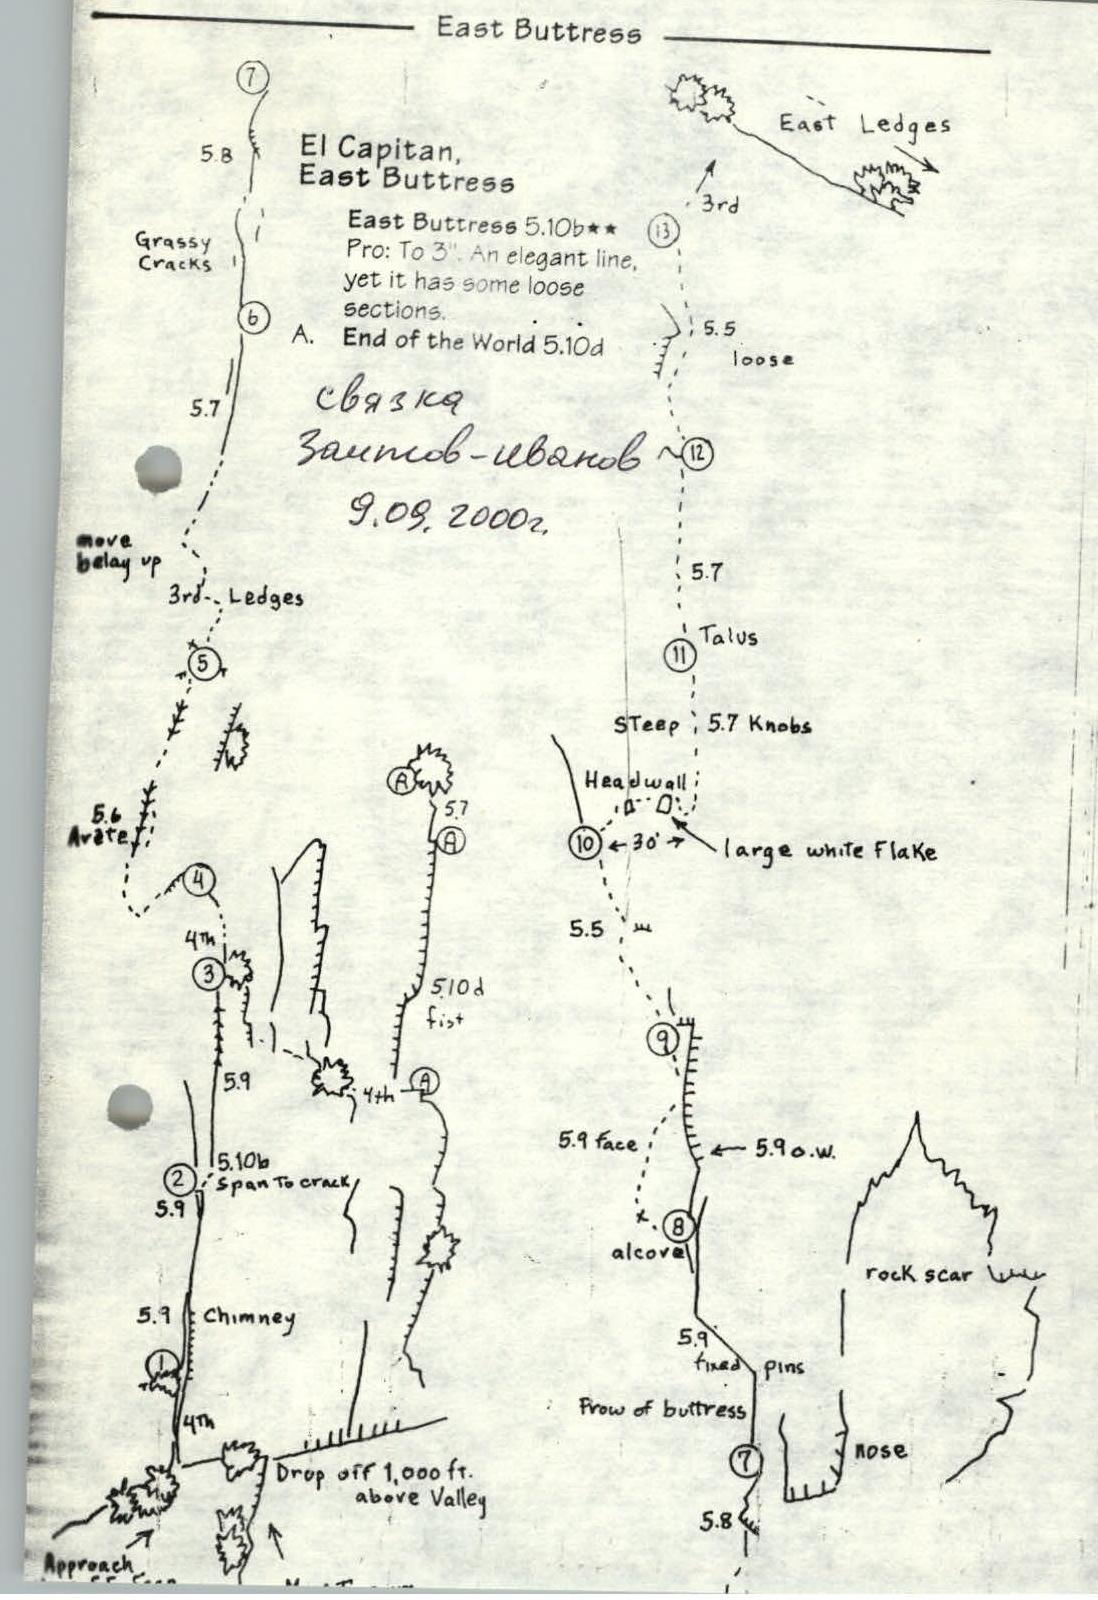 East Buttress
7
5.8
El Capitan,
East Buttress
East Buttress 5.10b★★
Pro: To 3". An elegant line,
yet it has some loose
sections.
A. End of the World 5.10d
Grassy
Cracks
6
5.7
связка
Заитов-Иванов
9.09.2000г.
move
belay up
3rd
Ledges
5
5.6
Arete
4
4Th
3
5.9
5.10b
Span To crack
2
5.9
5.9
Chimney
1
4Th
Drop off 1,000 ft.
above Valley
Approach
A
5.7
A
5.10d
fist
4th
A
East Ledges
3rd
13
5.5
loose
12
5.7
Talus
11
STeep
5.7 Knobs
Headwall
10
30'
large white Flake
5.5
9
5.9 Face
5.9 o.w.
8
alcove
rock scar
5.9
fixed pins
Prow of buttress
7
nose
5.8